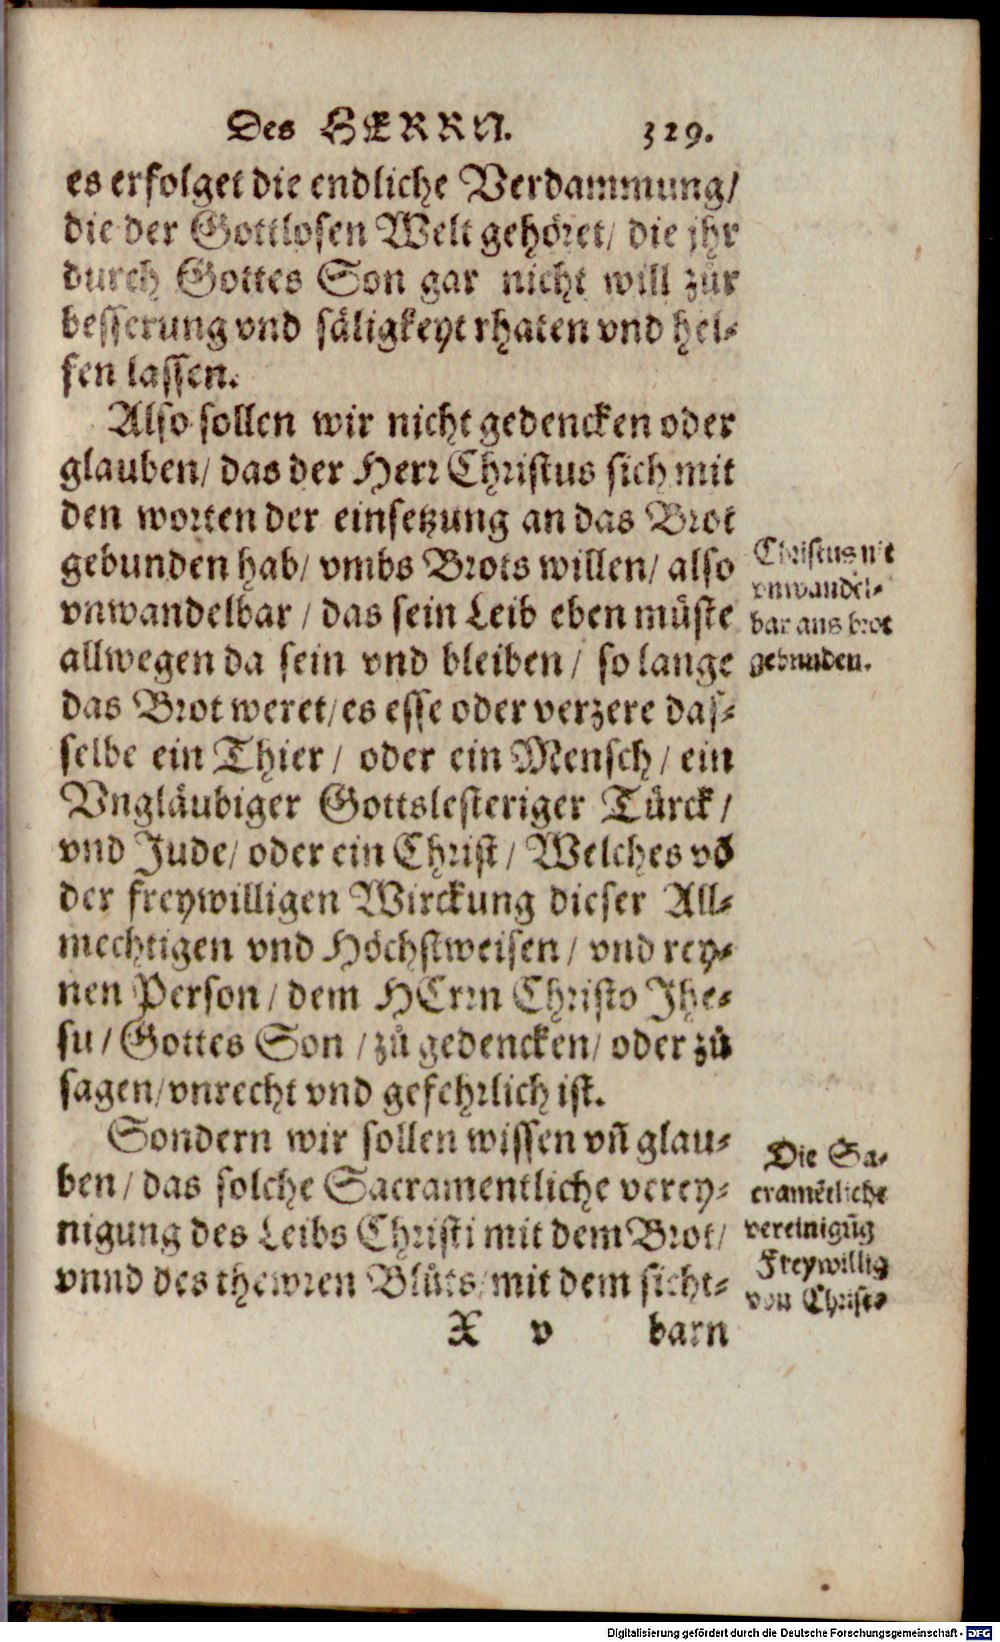 Des HERRN. 329.
es erfolget die endliche Verdammung/
die der Gottlosen Welt gehöret/ die jhr
durch Gottes Son gar nicht will zůr
besserung vnd säligkeyt rhaten vnd hel-
fen lassen.
Also sollen wir nicht gedencken oder
glauben/ das der Herr Christus sich mit
den worten der einsetzung an das Brot
gebunden hab/ vmbs Brots willen/ also
vnwandelbar / das sein Leib eben müste
allwegen da sein vnd bleiben / so lange
das Brot weret/ es esse oder verzere das-
selbe ein Thier / oder ein Mensch / ein
Vngläubiger Gottslesteriger Türck /
vnd Jude/ oder ein Christ / Welches võ
der freywilligen Wirckung dieser All-
mechtigen vnd Höchstweisen / vnd rey-
nen Person / dem HErrn Christo Jhe-
su / Gottes Son / zů gedencken/ oder zů
sagen/ vnrecht vnd gefehrlich ist.
Sondern wir sollen wissen vñ glau-
ben / das solche Sacramentliche verey-
nigung des Leibs Christi mit dem Brot/
vnnd des thewren Blůts/ mit dem sicht-
X v barn
Christus nit
vnwandel-
bar ans brot
gebunden.
Die Sa-
cramẽtliche
vereinigũg
Freywillig
von Christ-
Digitalisierung gefördert durch die Deutsche Forschungsgemeinschaft - DFG